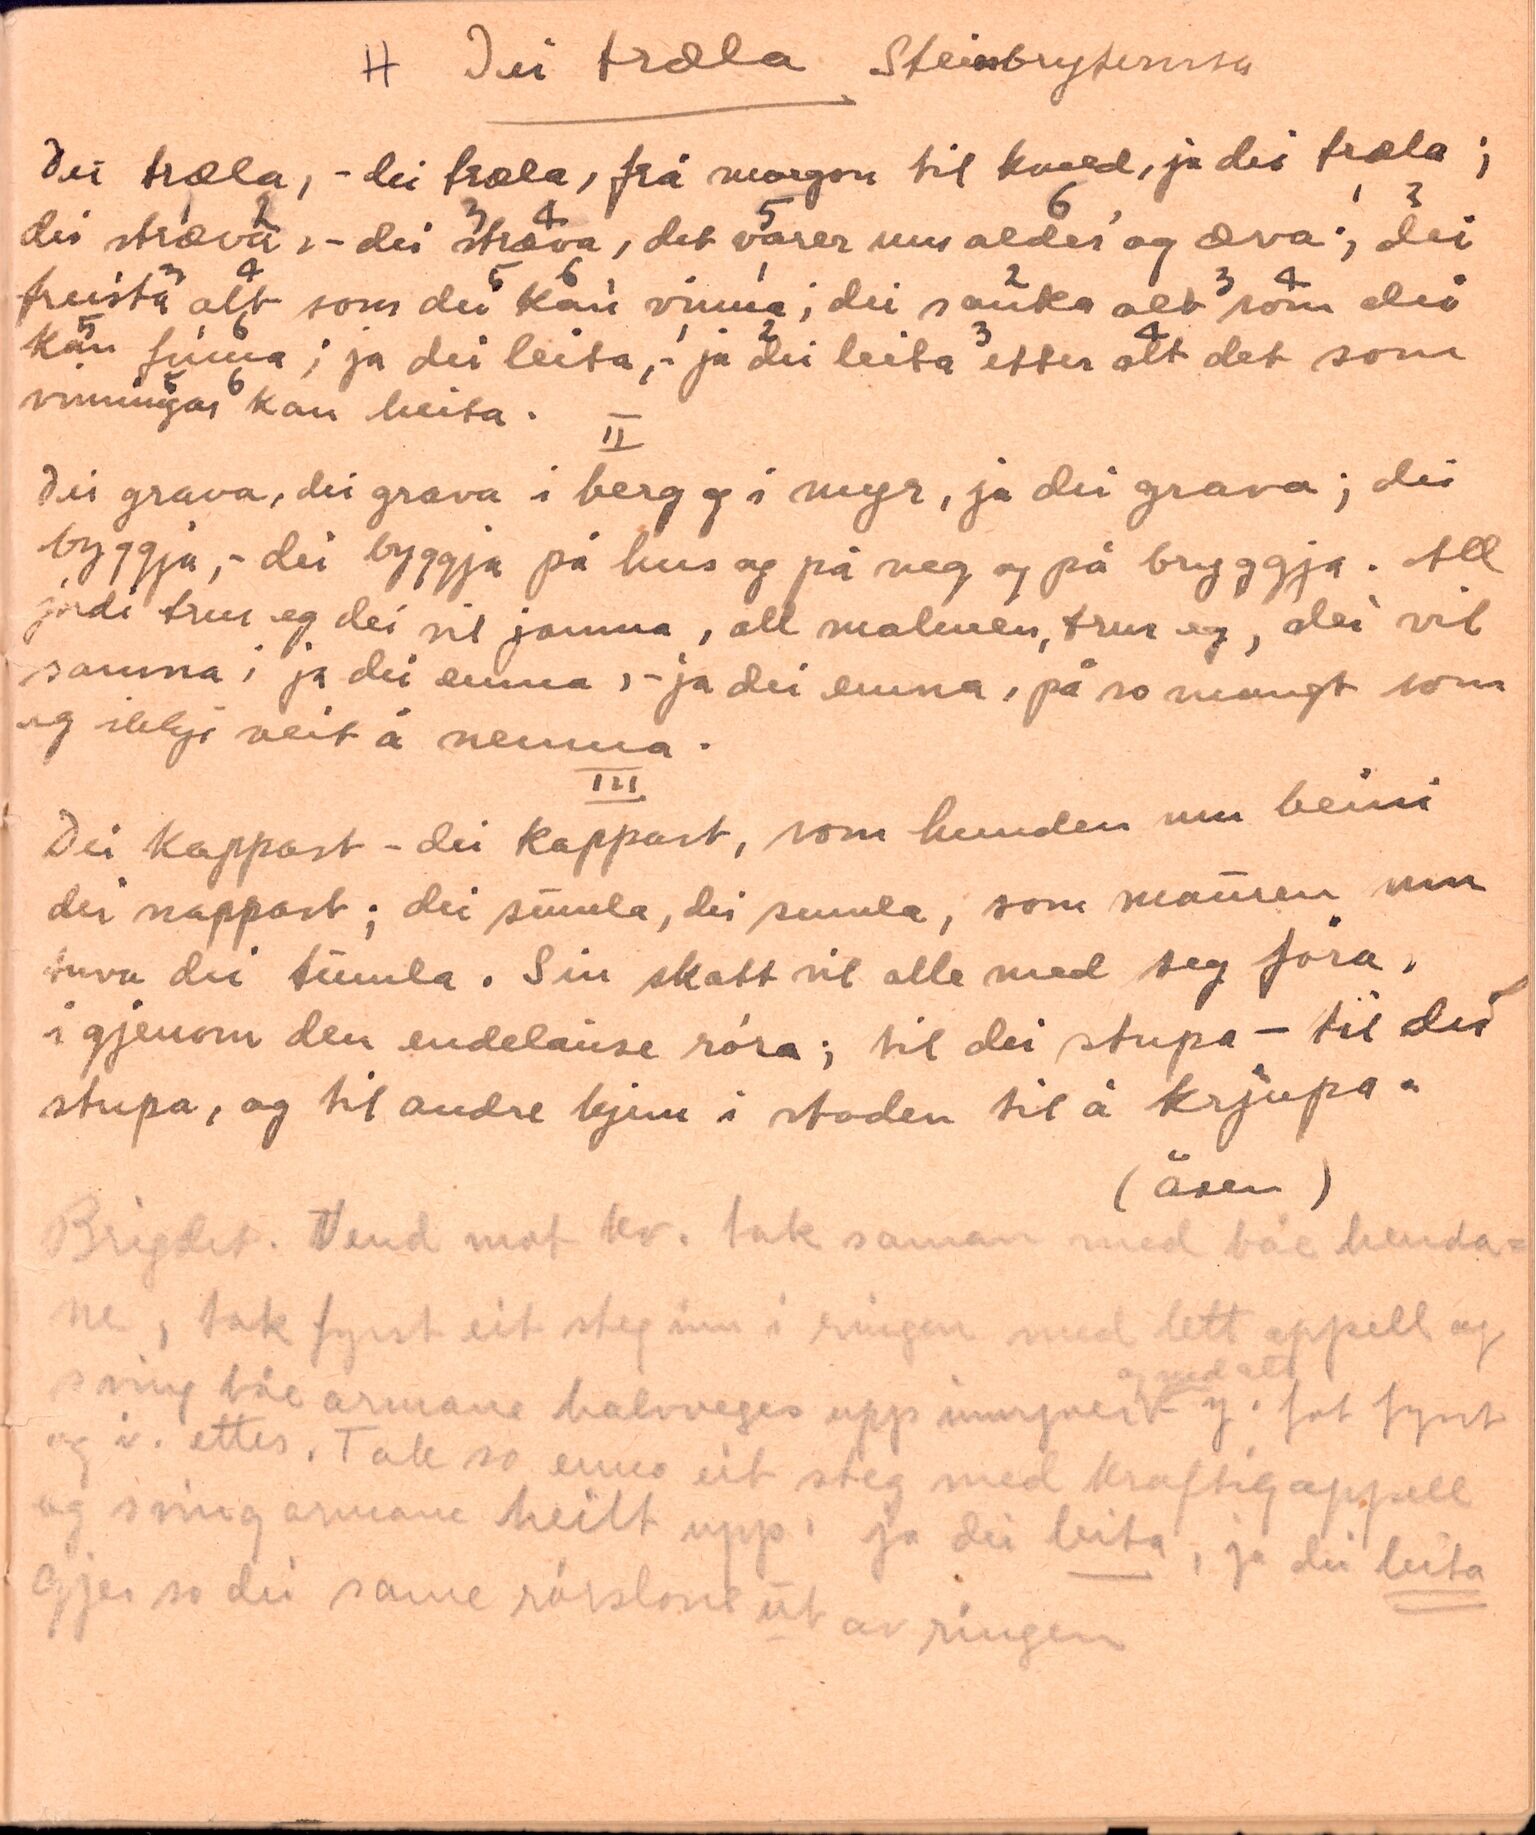 H Dei træla Steinbrytervisa
Dei træla, - dei træla, frå morgon til kveld, ja dei træla ;
1 2 3 4 5 6 1 2
dei stræva, - dei stræva, det varer um alder og æva ; dei
3 4 5 6 1 2 3 4
freista alt som dei kan vinna ; dei sanka alt som dei
5 6 1 2 3 4
kan finna ; ja dei leita, - ja dei leita etter alt det som
5 6
vinningar kan heita .
II
Dei grava, dei grava i berg og i myr, ja dei grava ; dei
byggja, - dei byggja på hus og på veg og på bryggja . All
jordi trur eg dei vil jamna, all malmen, trur eg, dei vil
samna ; ja dei emna, - ja dei emna, på so mangt som
eg ikkje veit å nemna .
III
Dei kappast - dei kappast, som hunden um beini
dei nappast ; dei sumla, dei sumla, som mauren um
tuva dei tumla . Sin skatt vil alle med seg föra,
i gjenom den endelause röra ; til dei stupa - til dei
stupa, og til andre kjem i staden til å krjupa .
( Åsen )
Brigdet. Vend mot kv. tak saman med båe henda=
ne , tak fyrst eit steg inn i ringen med lett appell og
og med alt
sving båe armane halvveges upp h. fot fyrst
og v. etter. Tak so enno eit steg med kraftig appell
og sving armane heilt upp: ja dei leita , ja dei leita
Gjer so dei same rörslone ut av ringen